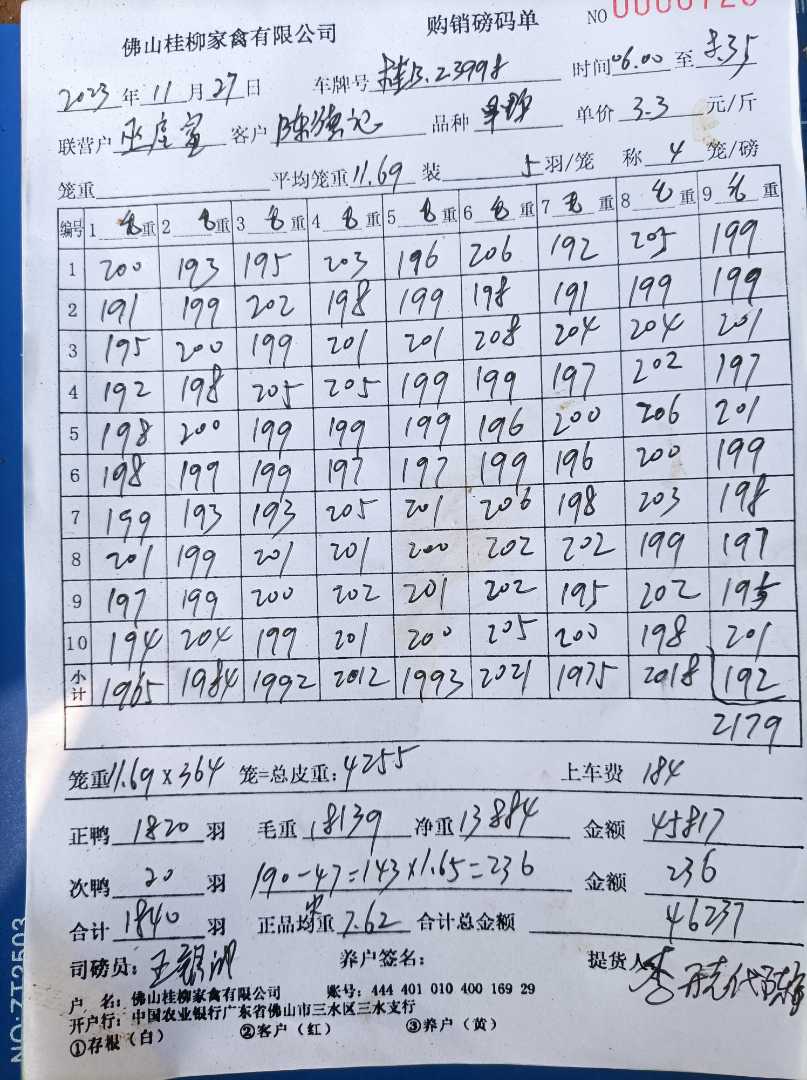 佛山桂柳家禽有限公司 购销磅码单 NO
2023年11月27日 车牌号 桂B.23998 时间06.00至 8.35
联营户 巫座富 客户 陈德记 品种 单价 3.3 元/斤
笼重 平均笼重11.69 装 5 羽/笼 称 4 笼/磅
编号 1 毛重 2 毛重 3 毛重 4 毛重 5 毛重 6 毛重 7 毛重 8 毛重 9 毛重
1 200 193 195 203 196 206 192 205 199
2 191 199 202 198 199 198 191 199 199
3 195 200 199 201 201 208 204 204 201
4 192 198 205 205 199 199 197 202 197
5 198 200 199 199 199 196 200 206 201
6 198 199 199 197 197 199 196 200 199
7 199 193 193 205 201 206 198 203 198
8 201 199 201 201 200 202 202 199 197
9 197 199 200 202 201 202 195 202 195
10 194 204 199 201 200 205 200 198 201
小计 1965 1984 1992 2012 1993 2021 1975 2018 192
2179
笼重11.69×364 笼=总皮重:4255 上车费 184
正鸭 1820 羽 毛重 18139 净重 13884 金额 45817
次鸭 20 羽 190-47=143×1.65=236 金额 236
合计 1840 羽 正品均重 7.62 合计总金额 46237
司磅员: 养户签名: 提货人
户 名: 佛山桂柳家禽有限公司 账号: 444 401 010 400 169 29
开户行: 中国农业银行广东省佛山市三水区三水支行
①存根(白) ②客户(红) ③养户(黄)
NO:ZT2503